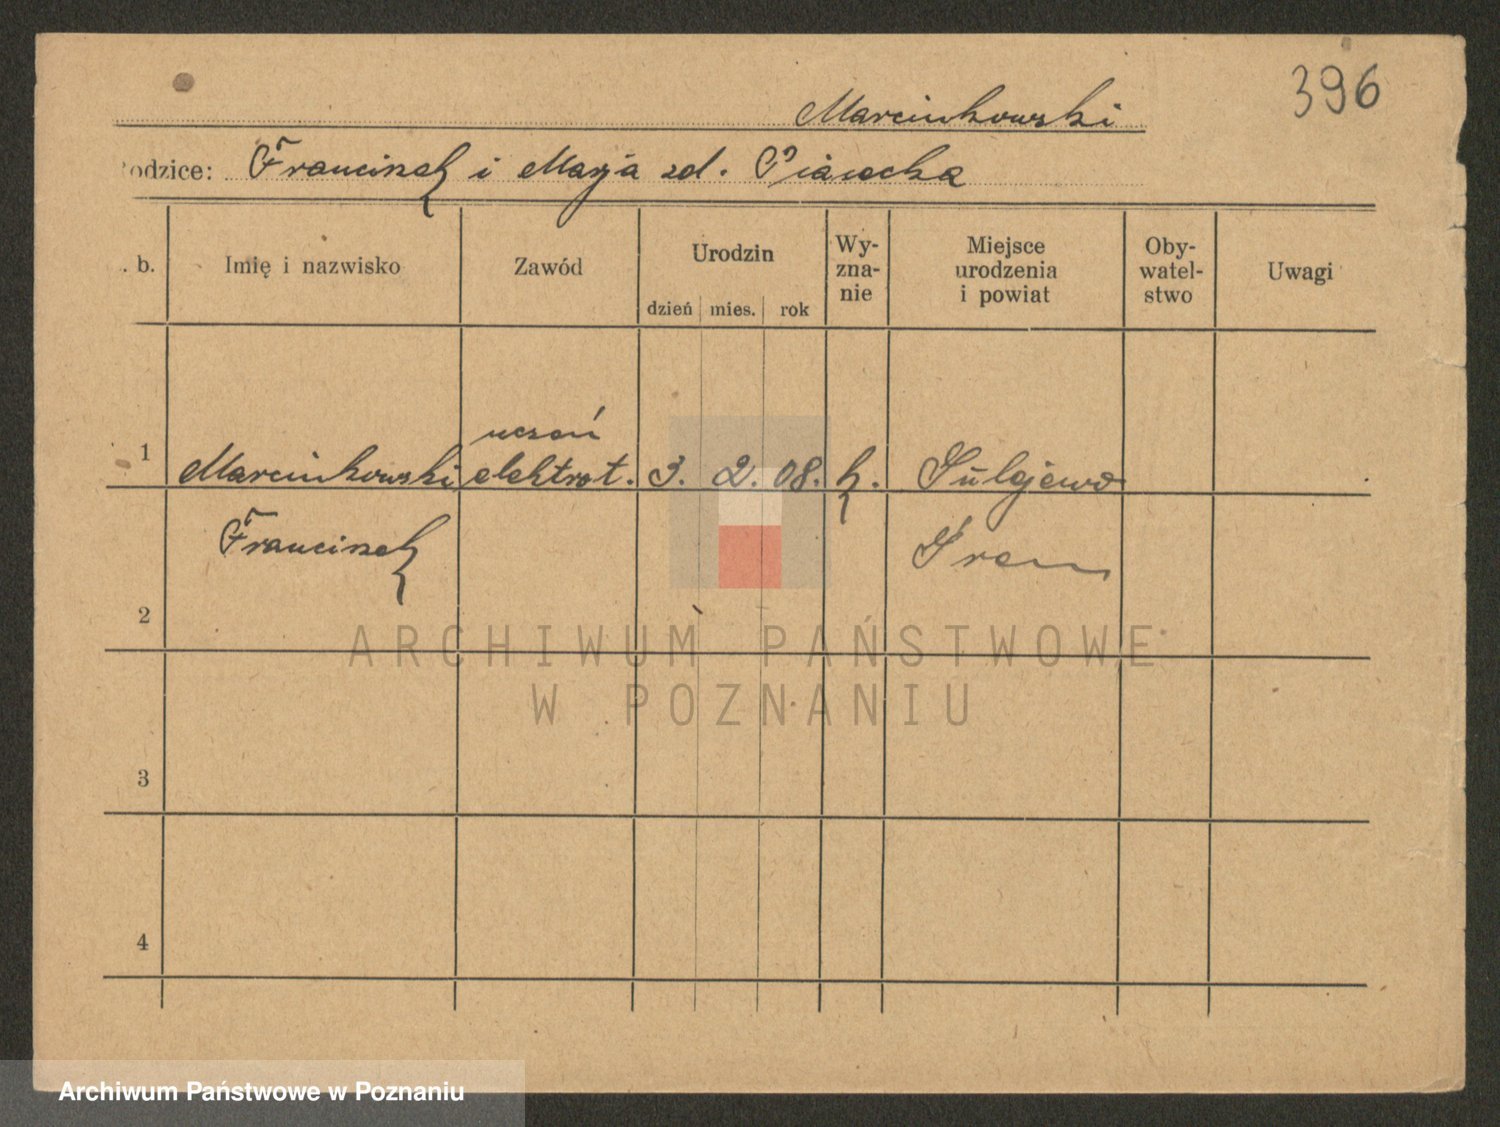 396
Marcinkowski
odzice: Franciszek i Marja zd.
. b. Imię i nazwisko Zawód Urodzin Wy-zna-nie Miejsce urodzenia i powiat Oby-watel-stwo Uwagi
dzień mies. rok
uczeń
1 Marcinkowski elektrot. 3. 2. 08. k. Sulejewo
Franciszek Śrem
2
ARCHIWUM PAŃSTWOWE
W POZNANIU
3
4
Archiwum Państwowe w Poznaniu